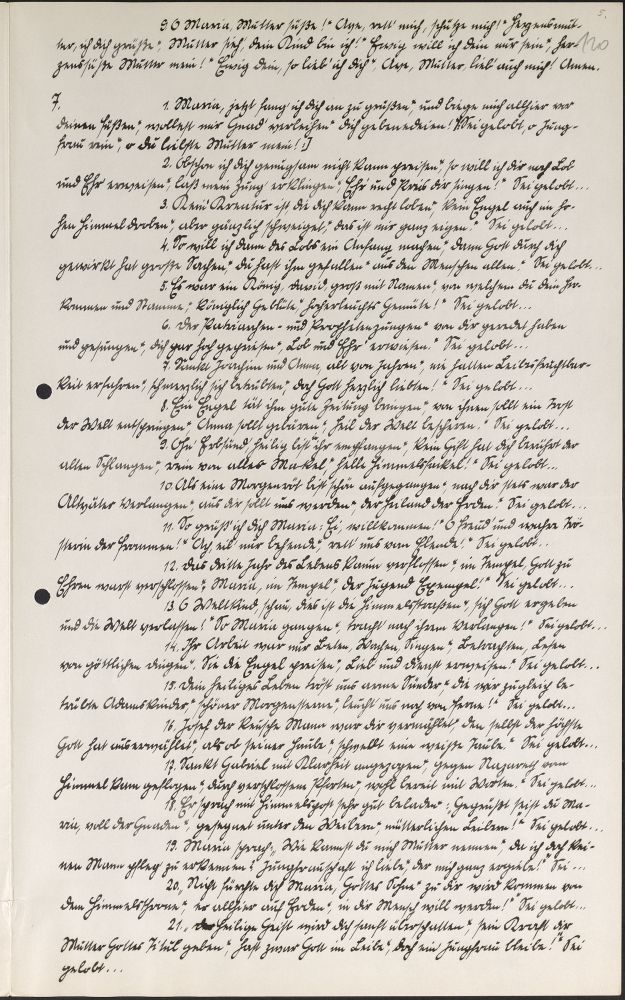 5.
120
9. O Maria, Mutter süße!" Aye, rett' mich, schütze mich!" Herzensmut-
ter, ich dich grüße", Mutter sieh, dein Kind bin ich!" Ewig will ich dein nur sein", Her-
zenssüße Mutter mein!" Ewig dein, so lieb' ich dich", Aye, Mutter, lieb' auch mich! Amen.
7.
1. Maria, jetzt fang' ich dich an zu grüßen" und biege mich allhier vor
deinen Füßen", wollest mir Gnad' verleihen" dich gebenedeien! Sei gelobt, o Jung-
frau rein", o du liebste Mutter mein!
2. Obschon ich dich genugsam nicht kann preisen", so will ich dir noch Lob
und Ehr' erweisen, laß mein Zung' erklingen", Ehr' und Preis dir singen!" Sei gelobt...
3. Kein' Kreatur ist, die dich kann recht loben", kein Engel auch im ho-
hen Himmel droben", aber gänzlich schweigen", das ist mir ganz eigen." Sei gelobt...
4. So will ich dann des Lobs ein Anfang machen", dann Gott durch dich
gewirkt hat große Sachen", du hast ihm gefallen" aus den Menschen allen." Sei gelobt...
5. Es war ein König, David, groß mit Namen", von welchem du dein Her-
kommen und Stamme", königlich Geblüte", hocherleucht's Gemüte!" Sei gelobt...
6. Der Patriarchen- und Prophetenzungen" von dir geredet haben
und gesungen", dich gar hoch gepriesen", Lob und Ehr' erwiesen." Sei gelobt...
7. Sankt Joachim und Anna, alt von Jahren", nie hatten Leibesfruchtbar-
keit erfahren", schmerzlich sich betrübten", doch Gott herzlich liebten!" Sei gelobt...
8. Ein Engel tät ihn' gute Zeitung bringen", von ihnen sollt' ein Trost
der Welt entspringen", Anna sollt' gebären", Heil der Welt bescheren." Sei gelobt...
9. Ohn' Erbsünd', heilig bist ihr' empfangen", kein Gift hat dich berührt der
alten Schlangen", rein von aller Makel", helle Himmelsfackel!" Sei gelobt...
10. Als eine Morgenröt' bist schön aufgegangen", nach dir stets war der
Altväter Verlangen", aus dir sollt' uns werden", der Heiland der Erden!" Sei gelobt...
11. So grüß' ich dich Maria: Ei, willkommen!" O Freud' und wahre Trö-
sterin der Frommen!" Ach eil' nur behende", rett' uns vom Elende!" Sei gelobt...
12. Das dritte Jahr des Lebens kaum verflossen", im Tempel, Gott zu
Ehren warst verschlossen", Maria, im Tempel", der Jugend Exempel!" Sei gelobt...
13. O Weltkind, schau, das ist die Himmelsstraßen", sich Gott ergeben
und die Welt verlassen!" So Maria gangen", tracht' nach ihrem Verlangen!" Sei gelobt...
14. Ihr' Arbeit war nur Beten, Wachen, Singen", Betrachten, Lesen
von göttlichen Dingen", Sie die Engel preisen", Lieb' und Dienst erweisen." Sei gelobt...
15. Dein heiliges Leben tröst' uns arme Sünder", die wir zugleich be-
trübte Adamskinder", schöner Morgensterne", leucht' uns noch von ferne!" Sei gelobt...
16. Josef der keusche Mann war dir vermählet", den selbst der Höchste
Gott hat auserwählet", als ob seiner Haube", schwebt' eine weiße Taube." Sei gelobt...
17. Sankt Gabriel mit Klarheit angezogen", gegen Nazareth vom
Himmel kam geflogen", durch verschlossene Pforten", wohl bereit mit Worten." Sei gelobt...
18. Er sprach mit Himmelspost sehr gut beladen: „Gegrüßt seist du Ma-
ria, voll der Gnaden", gesegnet unter den Weibern", mütterlichen Leibern!" Sei gelobt...
19. Maria sprach: „Wie kannst du mich Mutter nennen", da ich doch kei-
nen Mann pfleg' zu erkennen", Jungfrauschaft ich liebe", der mich ganz ergebe!" Sei...
20. „Nicht fürchte dich Maria, Gottes Sohne" zu dir wird kommen von
dem Himmelsthrone", er allhier auf Erden", in dir Mensch will werden!" Sei gelobt...
21. „Der Heilige Geist wird dich sanft überschatten", sein' Kraft der
Mutter Gottes Titul geben", hast zwar Gott im Leibe", doch ein' Jungfrau bleibe!" Sei
gelobt...